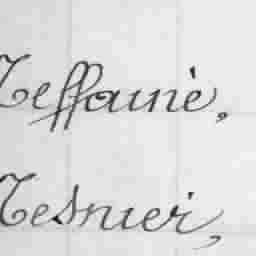 Teffainè,
Tesnier,